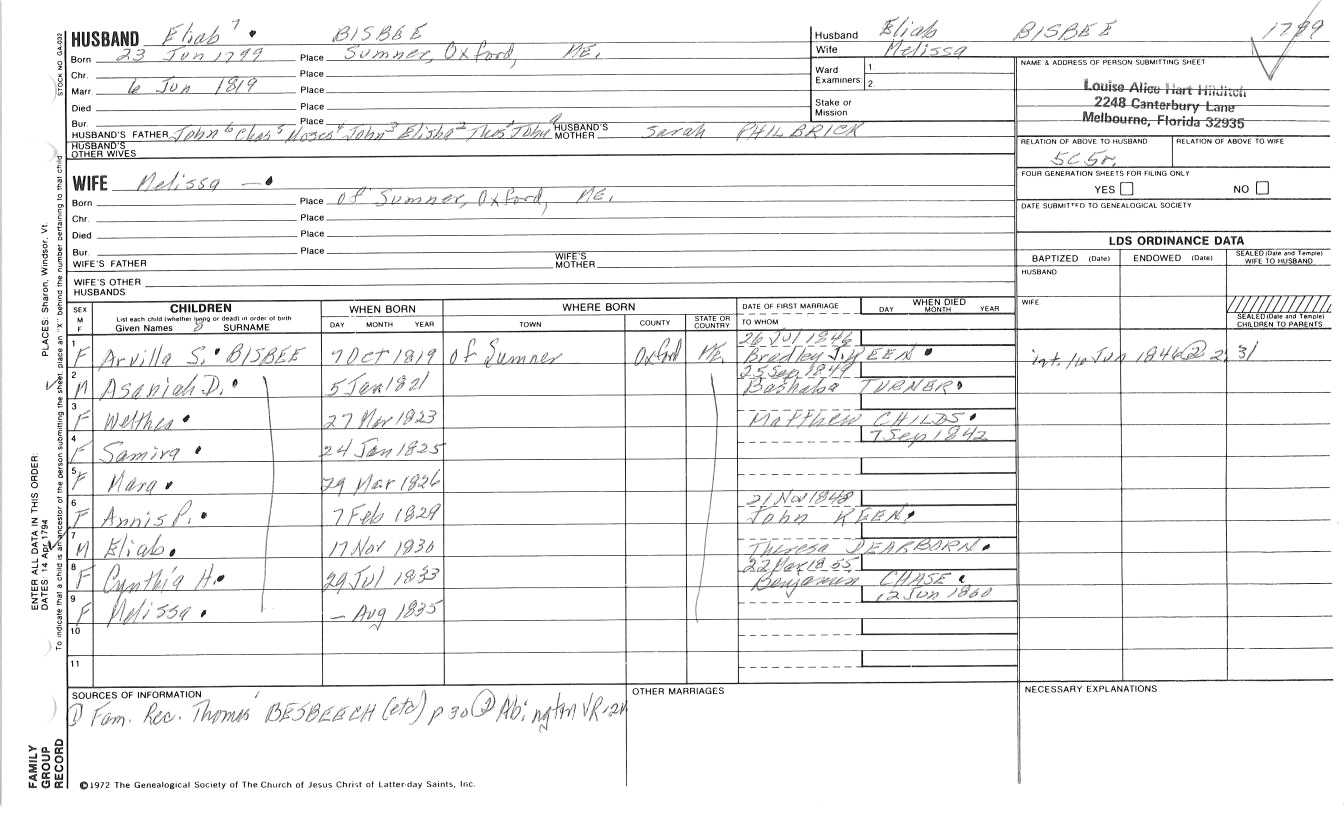 HUSBAND Eliab 7 BISBEE
Born 23 Jun 1799 Place Sumner, Oxford, ME.
Chr. Place
Marr. 6 Jun 1819 Place
Died Place
Bur. Place
HUSBAND'S FATHER John 6 Chas 5 Moses 4 John 3 Elisha 2 Thos 1 John HUSBAND'S MOTHER Sarah PHILBRICK
HUSBAND'S OTHER WIVES
WIFE Melissa —
Born Place of Sumner, Oxford, ME.
Chr. Place
Died Place
Bur. Place
WIFE'S FATHER WIFE'S MOTHER
WIFE'S OTHER HUSBANDS
Husband Eliab BISBEE 1799
Wife Melissa
Ward Examiners: 1. 2.
Stake or Mission
NAME & ADDRESS OF PERSON SUBMITTING SHEET
Louise Alice Hart Hilditch
2248 Canterbury Lane
Melbourne, Florida 32935
RELATION OF ABOVE TO HUSBAND RELATION OF ABOVE TO WIFE
5C5r.
FOUR GENERATION SHEETS FOR FILING ONLY
YES NO
DATE SUBMITTED TO GENEALOGICAL SOCIETY
LDS ORDINANCE DATA
BAPTIZED (Date) ENDOWED (Date) SEALED (Date and Temple) WIFE TO HUSBAND
HUSBAND
WIFE
SEALED (Date and Temple) CHILDREN TO PARENTS
SEX M F CHILDREN WHEN BORN WHERE BORN DATE OF FIRST MARRIAGE WHEN DIED
List each child (whether living or dead) in order of birth
Given Names SURNAME DAY MONTH YEAR TOWN COUNTY STATE OR COUNTRY TO WHOM DAY MONTH YEAR
1 F Arvilla S. BISBEE 7 Oct 1819 of Sumner Oxford ME. 26 Jul 1846 Bradley J. KEEN int. 16 Jun 1846 @ 2, 31
2 M Asaniah D. 5 Jan 1821 25 Sep 1849 Bashaba TURNER
3 F Welthea 27 Mar 1823 Matthew CHILDS
4 F Samira 24 Jan 1825 7 Sep 1842
5 F Mara 29 Mar 1826
6 F Annis P. 7 Feb 1829 21 Nov 1848 John KEEN
7 M Eliab 17 Nov 1830 Theresa DEARBORN
8 F Cynthia H. 29 Jul 1833 22 Mar 1855 Benjamin CHASE
9 F Melissa — Aug 1835 12 Jun 1860
10
11
SOURCES OF INFORMATION
① Fam. Rec. Thomas BESBEECH (etc) p 30 ② Abington VR
OTHER MARRIAGES
NECESSARY EXPLANATIONS
©1972 The Genealogical Society of The Church of Jesus Christ of Latter-day Saints, Inc.
STOCK NO. GA-032
PLACES: Sharon, Windsor, Vt.
ENTER ALL DATA IN THIS ORDER:
DATES: 14 Apr 1794
To indicate that a child is an ancestor of the person submitting the sheet, place an "X" behind the number pertaining to that child.
FAMILY GROUP RECORD